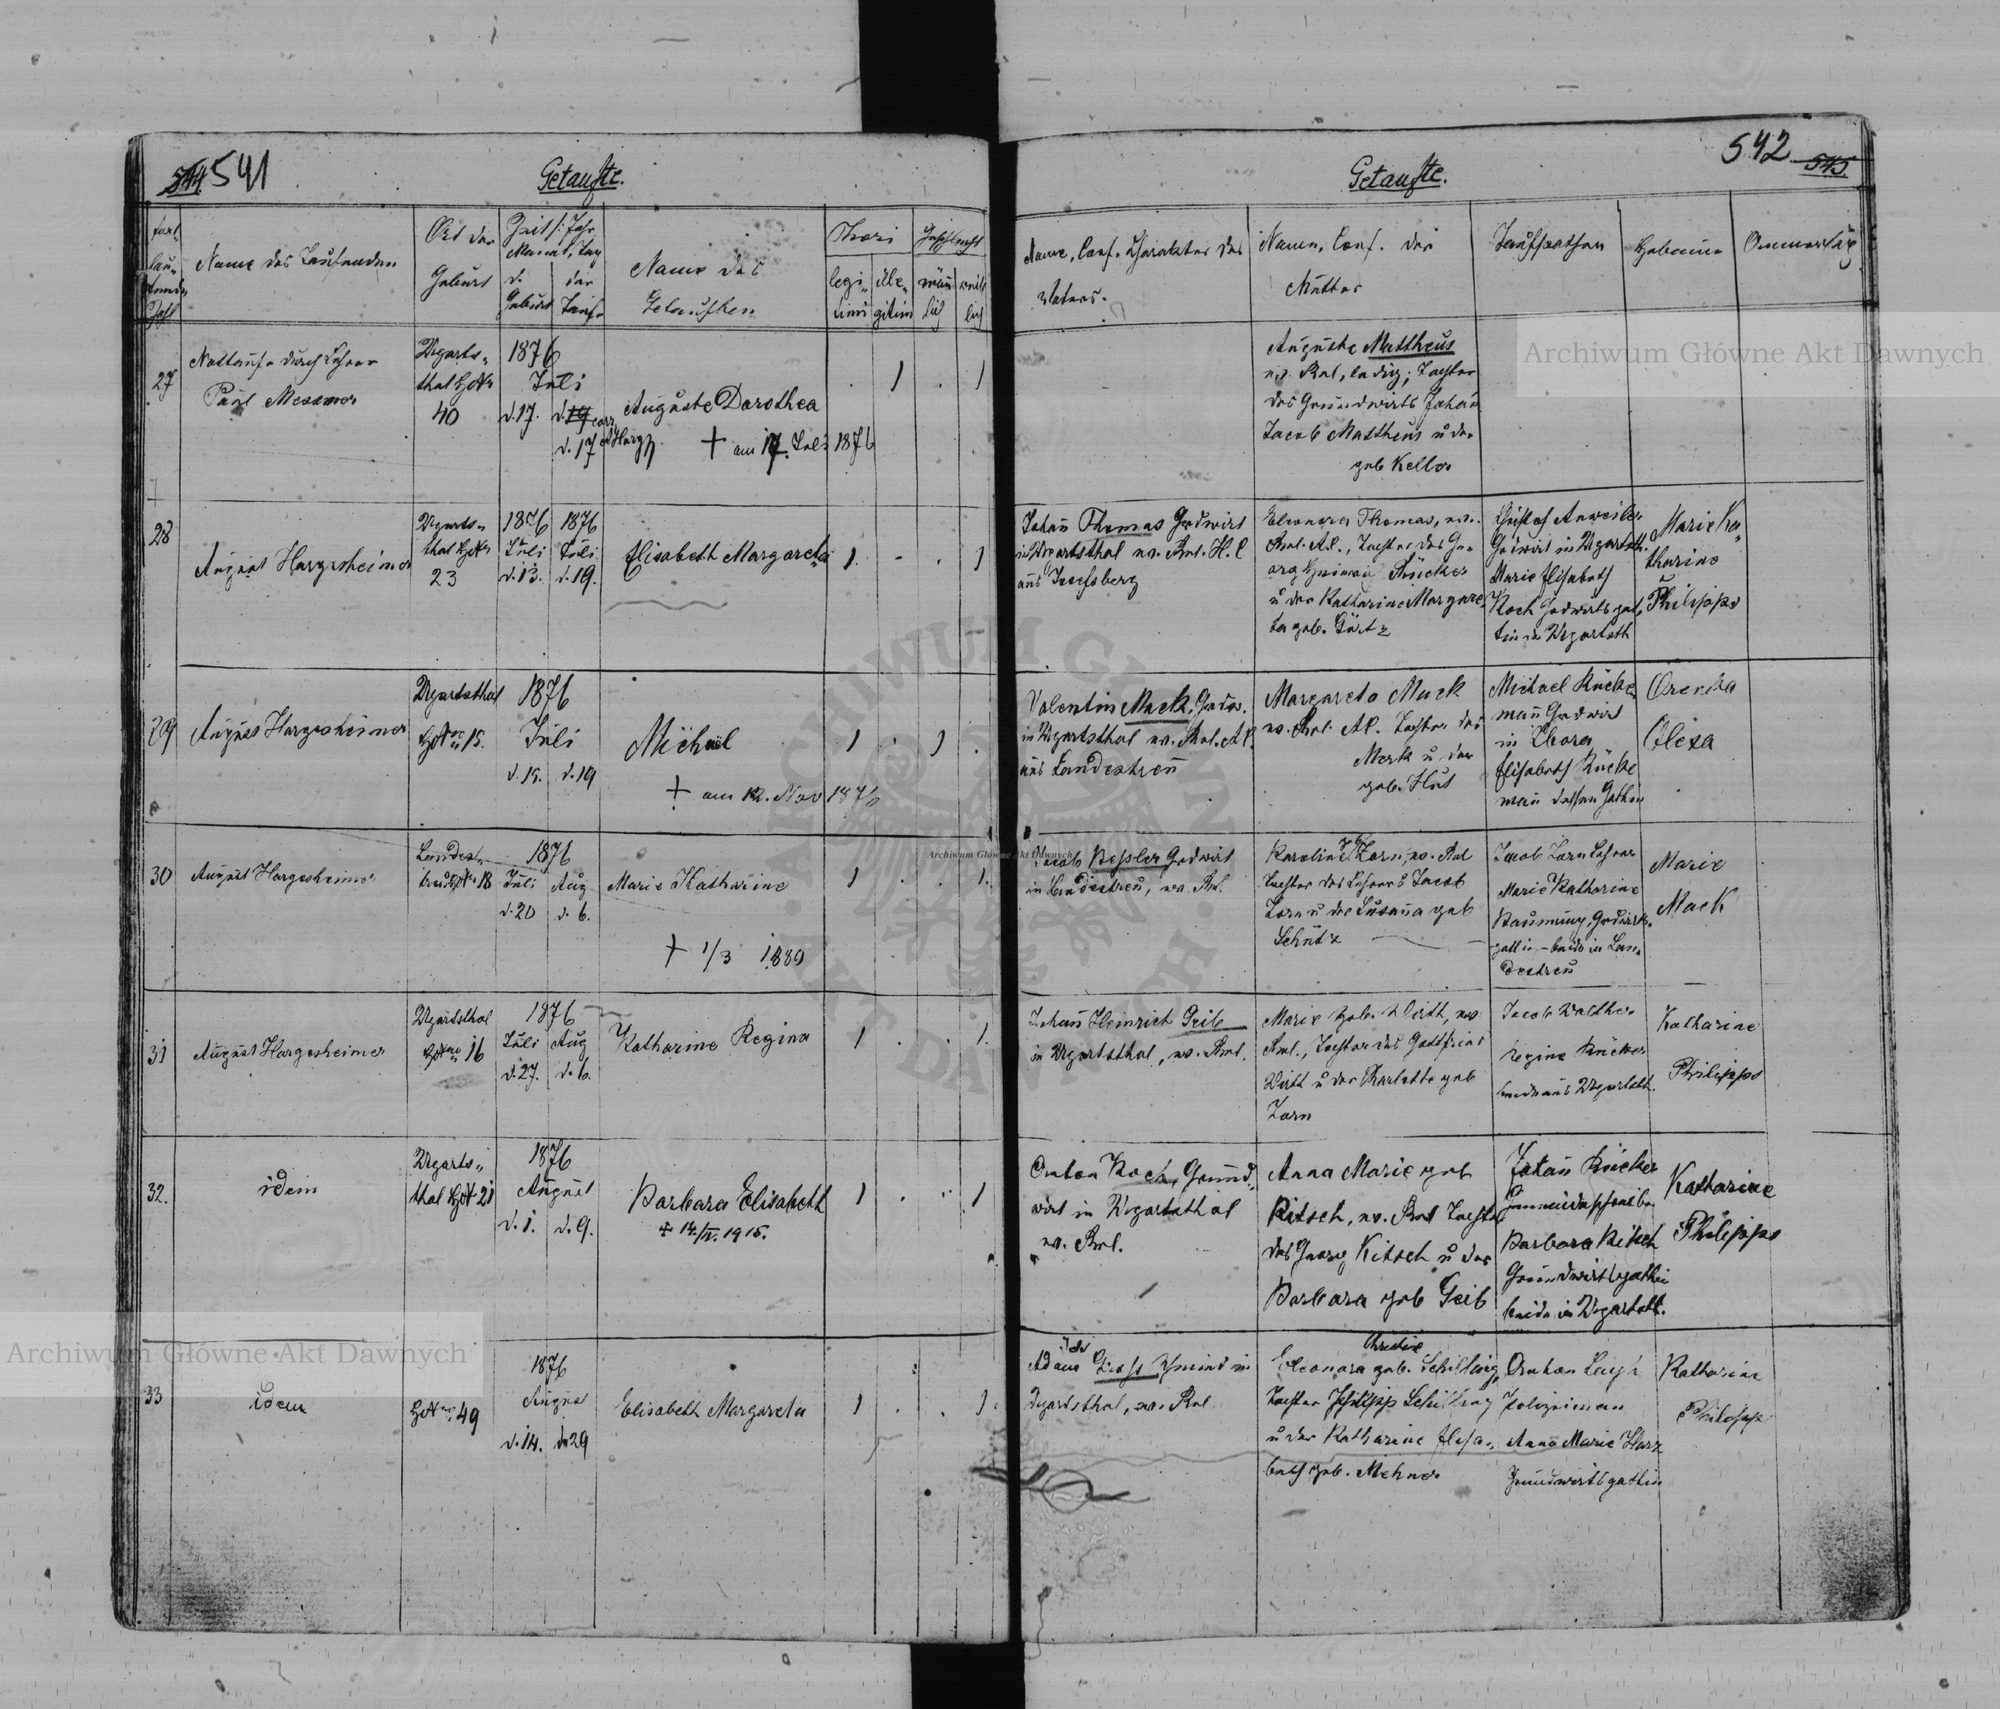 541
Getaufte.
542
545.
Getaufte.
Name des Taufenden
Ort der
Geburt
Zeit /: Jahr,
Monat, Tag
d.
Geburt
der
Taufe
Name des
Getauften
Thori
Geschlecht
legi„
timi
ille„
gitimi
män„
lich
weib„
lich
Name, Conf. Charakter des
Vaters.
Namen, Conf. der
Mutter
Taufpathen
Hebamme
27
Nottaufe durch Lehrer
Paul Messmer
Ugarts„
thal HsNo
40
1876
Juli
d. 17.
d. 17
Auguste Dorothea
+ am 17. Juli 1876
Auguste Mattheus
ev. Ref., ledig; Tochter
des Grundwirts Johan
Jacob Mattheus u der
geb Keller
28
August Hargesheimer
Ugarts„
thal HsNo
23
1876
Juli
d. 13.
1876
Juli
d. 19.
Elisabeth Margareta
Johan Thomas Grdwirt
in Ugartsthal ev. Ref. H. C
aus Josefsberg
Eleonora Thomas, ev.
Ref. A.C., Tochter des Ge„
org Rücker
u der Katharine Margare„
ta geb. Görtz
Christof Anweiler
Grdwirt in Ugartsth.
Marie Elisabeth
Koch Grdwirts gat„
tin in Ugartsth
Marie Ka„
tharine
Philipps
29
August Hargesheimer
Ugartsthal
HsNo 15.
1876
Juli
d. 15.
d. 19
Michael
+ am 12. Nov 1876
Valentin Mack, Grdw.
in Ugartsthal ev. Ref. A.C.
aus Landestreu
Margareta Mack
ev. Ref. A.C. Tochter des
Merk u der
geb. Hut
Michael Rücke
man Grdwirt
in Ugartsthal
Elisabeth Rücke
man dessen Gattin
Orenka
Olexa
30
August Hargesheimer
Landes„
treu HsNo 18
1876
Juli
d. 20
Aug
d. 6.
Marie Katharine
+ 1/3 1880
Jacob Kessler Grdwirt
in Landestreu, ev. Ref.
Karoline geb Zorn, ev. Ref
Tochter des Lehrers Jacob
Zorn u der Susana geb
Schütz
Jacob Zorn Lehrer
Marie Katharine
Bausmung, Grdwirts„
gattin – beide in Lan„
destreu
Marie
Mack
31
August Hargesheimer
Ugartsthal
HsNo 16
1876
Juli
d. 27.
Aug
d. 6.
Katharine Regina
Johan Heinrich Geib
in Ugartsthal, ev. Ref.
Marie geb. Wirth, ev.
Ref., Tochter des Gottfried
Wirth u der Charlotte geb
Zorn
Jacob Walther
Regine Rücker
beide aus Ugartsth.
Katharine
Philipps
32.
idem
Ugarts„
thal HsN 21
1876
August
d. 1.
d. 9.
Barbara Elisabeth
+ 14./IV. 1915.
Anton Koch, Grund„
wirt in Ugartsthal
ev. Ref.
Anna Marie geb
Kitsch, ev. Ref Tochter
des Georg Kitsch u der
Barbara geb Geib
Johan Rücker
Gemeindeschreiber
Barbara Kitsch
Grundwirtsgattin
beide in Ugartsth.
Katharine
Philipps
33
idem
HsNo 49
1876
August
d. 14.
d. 29
Elisabeth Margareta
Adam Gross Grund in
Ugartsthal, ev. Ref
Christine
Eleonora geb. Schilling,
Tochter Philipp Schilling
u der Katharine Elisa„
beth geb. Mehner
Anton Lugh
Polizeiman
Anna Marie Harz
Grundwirtsgattin
Katharine
Philipp
Archiwum Główne Akt Dawnych
Archiwum Główne Akt Dawnych
Archiwum Główne Akt Dawnych